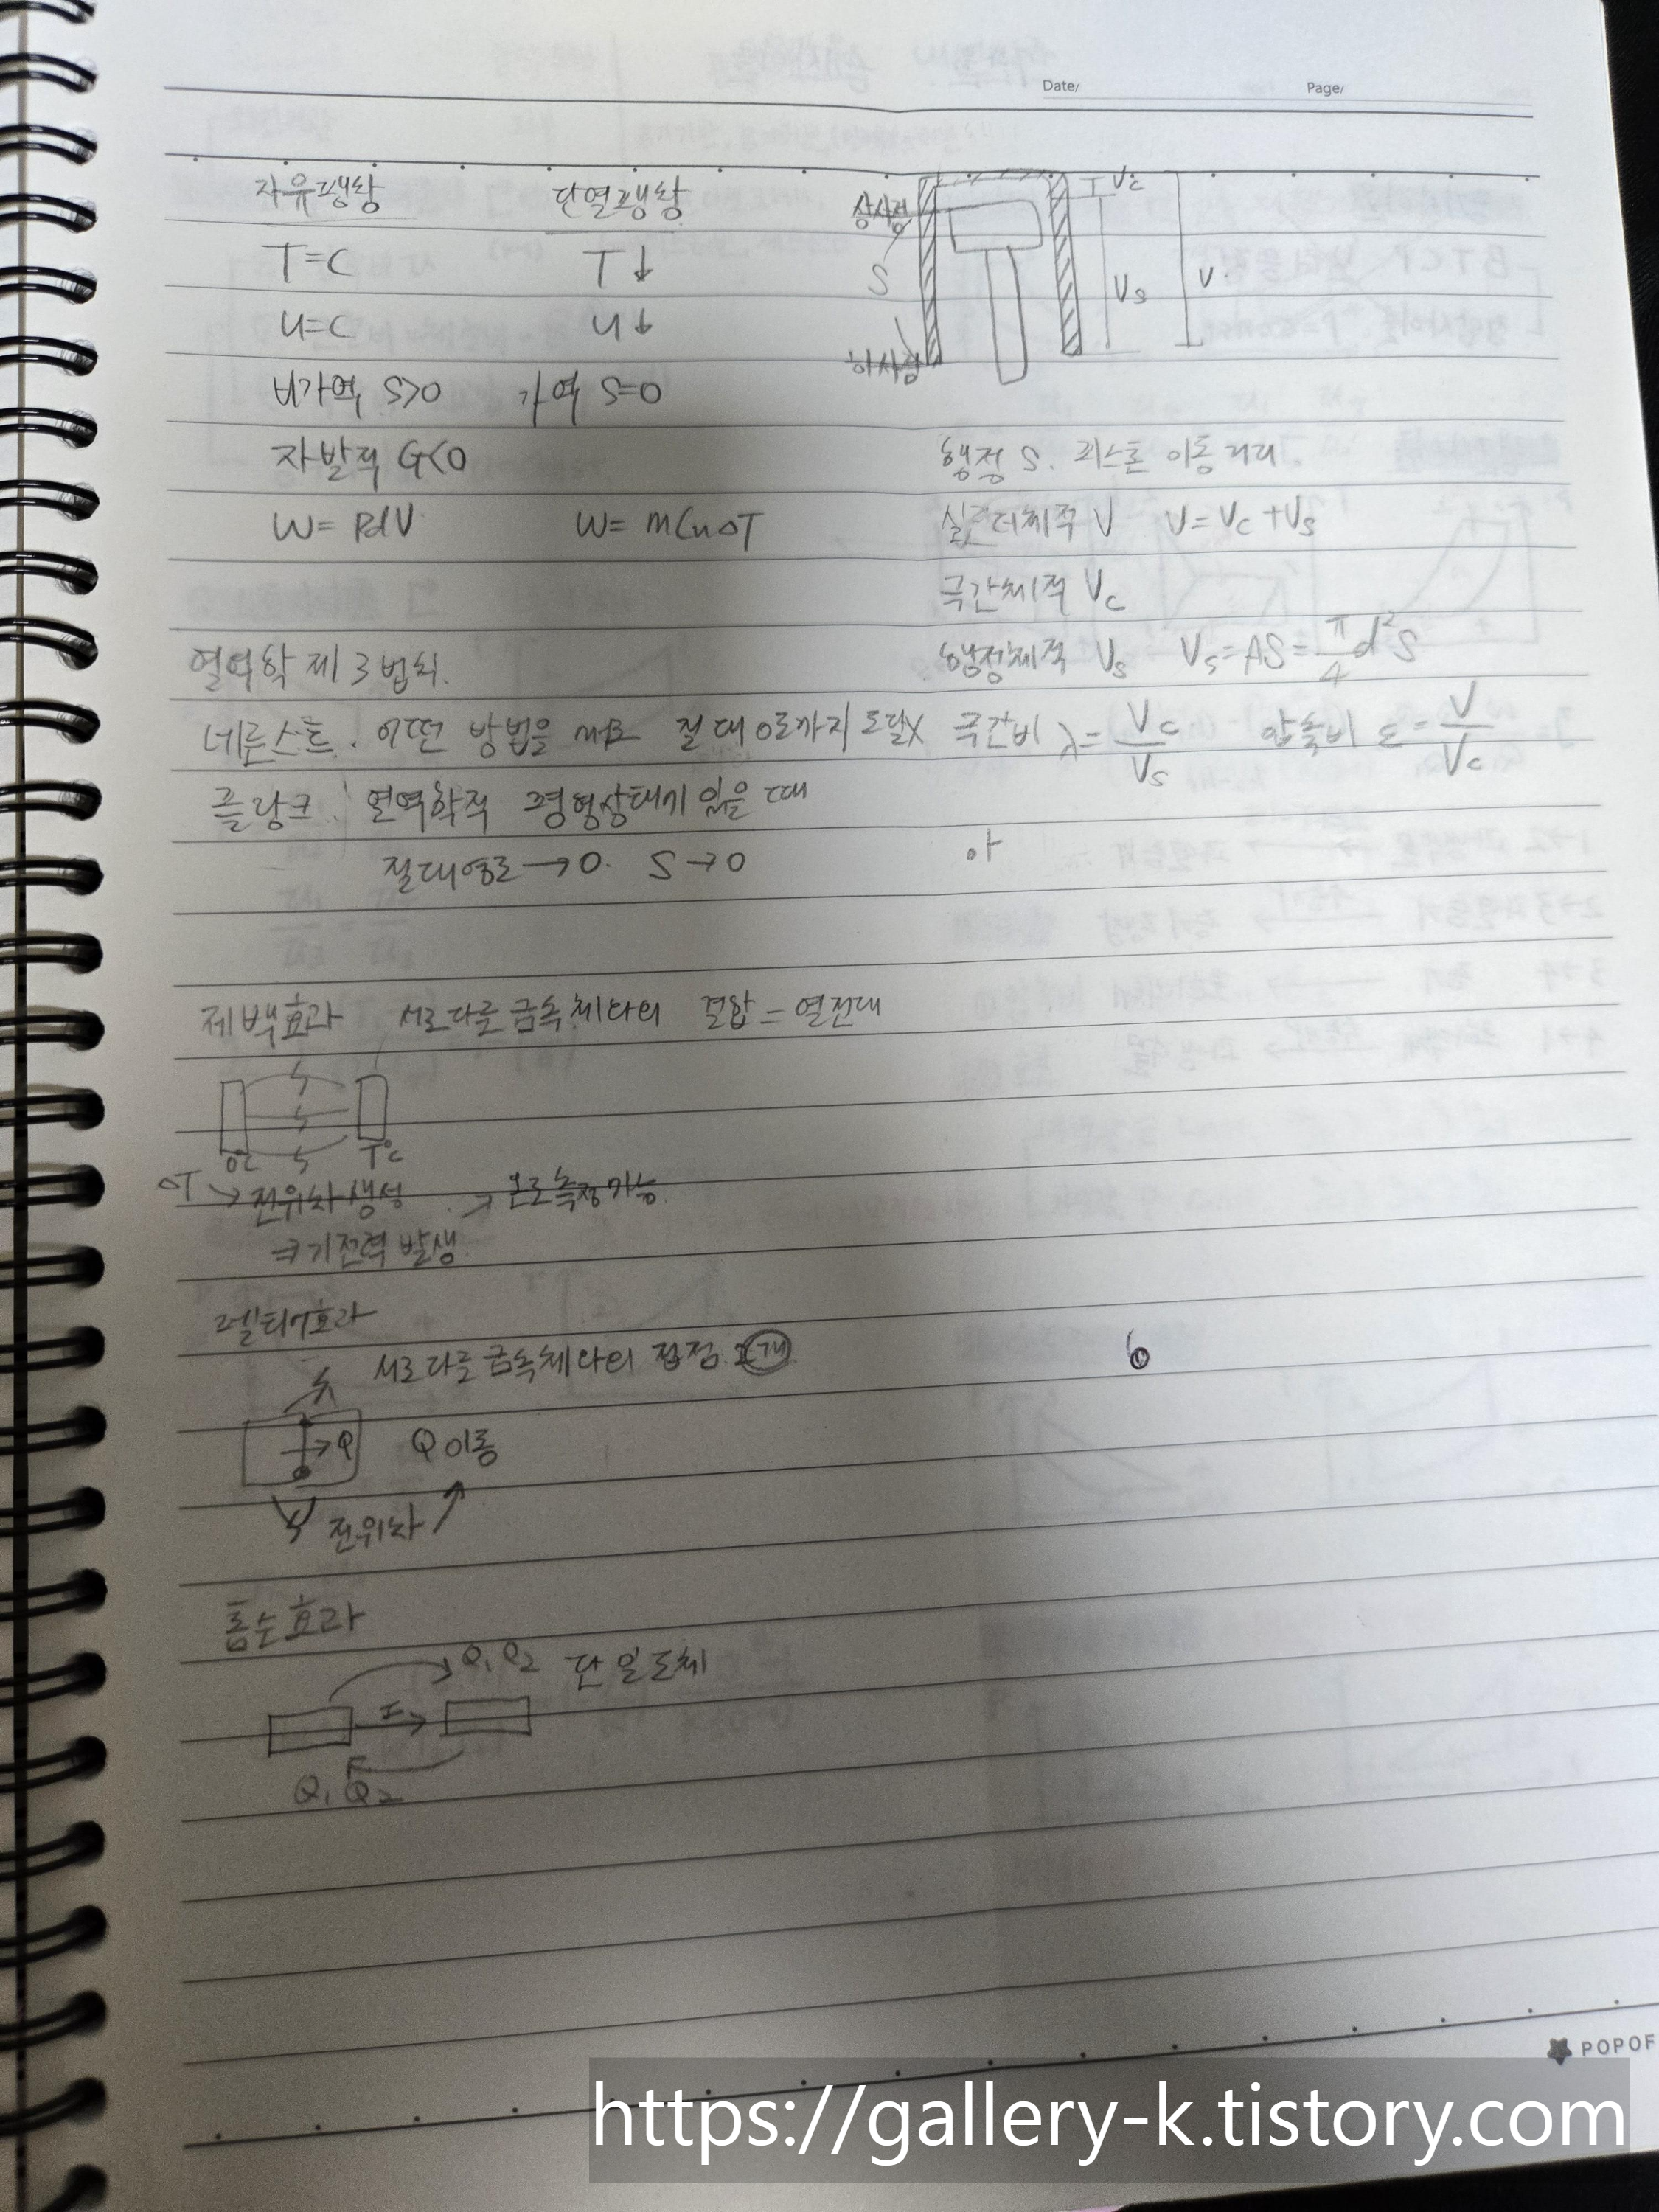 Date/ Page/
자유팽창 단열팽창
T=C T↓
U=C U↓
비가역 S>0 가역 S=0
자발적 G<0
W= PdV W= mCvΔT
열역학 제 3법칙.
네른스트. 어떤 방법을 써도 절대0도까지 도달X
플랑크: 열역학적 평형상태에 있을 때
절대영도→0. S→0
제백효과 서로다른 금속체 2개의 결합 = 열전대
0℃ T℃
ΔT → 전위차 생성 → 온도측정가능.
기전력 발생.
펠티어효과
서로다른 금속체 2개의 접점 2개
→Q Q이동
전위차
톰슨효과
Q1 Q2 단일도체
I
Q1 Q2
상사점
S
하사점
Vc
Vs
V
행정 S. 피스톤 이동거리.
실린더체적 V V=Vc+Vs
극간체적 Vc
행정체적 Vs Vs=AS=π/4 d²S
극간비 λ=Vc/Vs 압축비 ε=V/Vc
아
POPOF
https://gallery-k.tistory.com